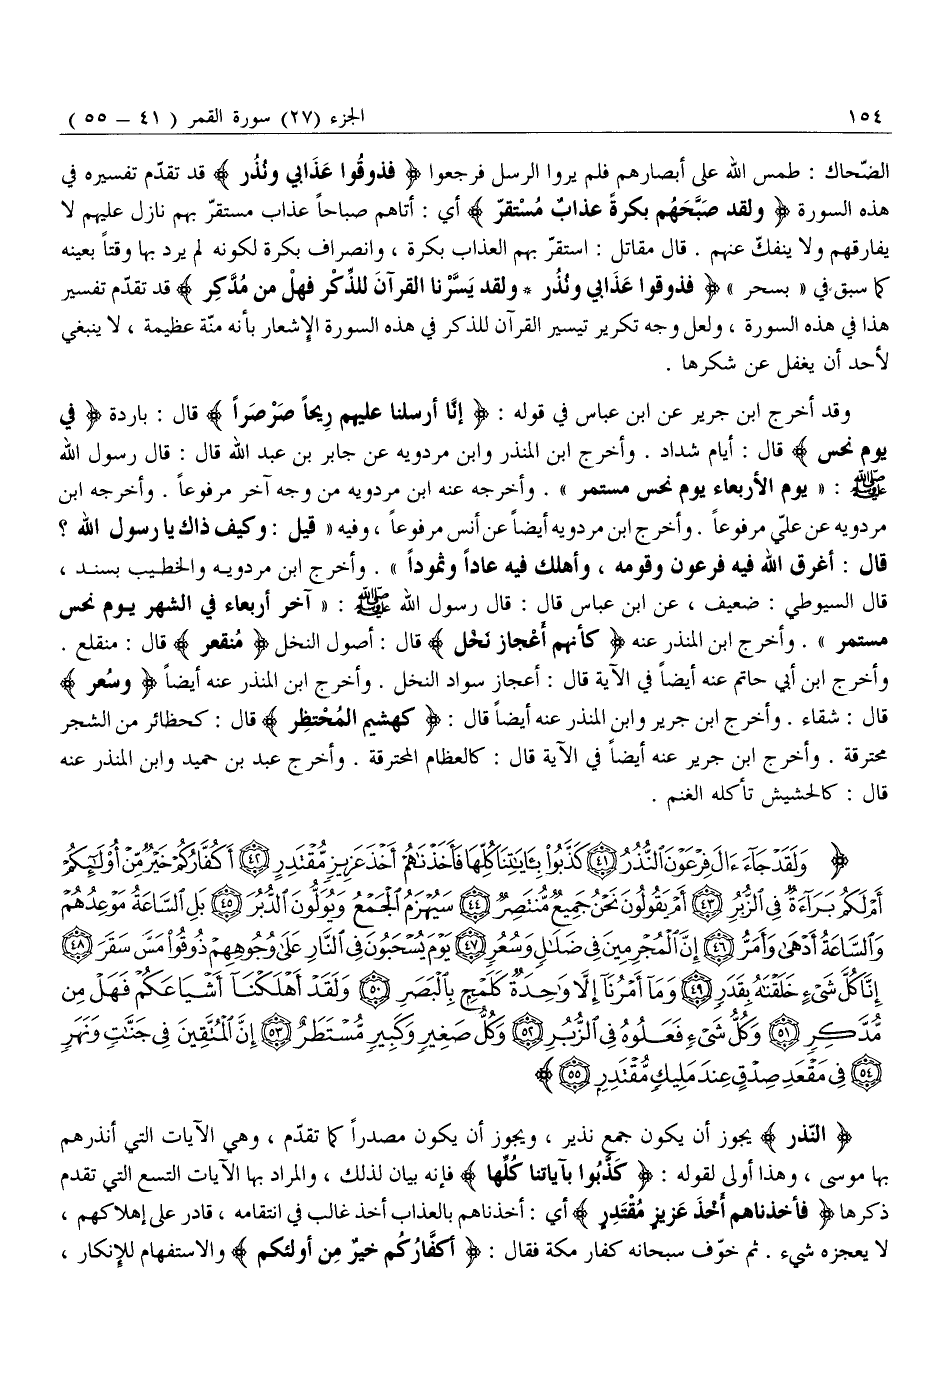 ١٥٤ الجزء (٢٧) سورة القمر ( ٤١ – ٥٥ )
الضّحاك : طمس الله على أبصارهم فلم يروا الرسل فرجعوا ﴿ فذوقُوا عَذَابي ونُذُر ﴾ قد تقدّم تفسيره في
هذه السورة ﴿ ولقد صَبَّحَهُم بكرةً عذابٌ مُستقرّ ﴾ أي : أتاهم صباحاً عذاب مستقرّ بهم نازل عليهم لا
يفارقهم ولا ينفكّ عنهم . قال مقاتل : استقرّ بهم العذاب بكرة ، وانصراف بكرة لكونه لم يرد بها وقتاً بعينه
كما سبق في « بسحر » ﴿ فذوقوا عَذَابي ونُذُر * ولقد يَسَّرْنا القرآنَ للذِّكْر فهلْ من مُدَّكِر ﴾ قد تقدّم تفسير
هذا في هذه السورة ، ولعل وجه تكرير تيسير القرآن للذكر في هذه السورة الإشعار بأنه منّة عظيمة ، لا ينبغي
لأحد أن يغفل عن شكرها .
وقد أخرج ابن جرير عن ابن عباس في قوله : ﴿ إنَّا أرسلنا عليهم رِيحاً صَرْصَراً ﴾ قال : باردة ﴿ في
يوم نحس ﴾ قال : أيام شداد . وأخرج ابن المنذر وابن مردويه عن جابر بن عبد الله قال : قال رسول الله
ﷺ : « يوم الأربعاء يوم نحس مستمر » . وأخرجه عنه ابن مردويه من وجه آخر مرفوعاً . وأخرجه ابن
مردويه عن عليّ مرفوعاً . وأخرج ابن مردويه أيضاً عن أنس مرفوعاً ، وفيه « قيل : وكيف ذاك يا رسول الله ؟
قال : أغرق الله فيه فرعون وقومه ، وأهلك فيه عاداً وثموداً » . وأخرج ابن مردويه والخطيب بسند ،
قال السيوطي : ضعيف ، عن ابن عباس قال : قال رسول الله ﷺ : « آخر أربعاء في الشهر يوم نحس
مستمر » . وأخرج ابن المنذر عنه ﴿ كأنهم أعْجاز نَخْل ﴾ قال : أصول النخل ﴿ مُنقعر ﴾ قال : منقلع .
وأخرج ابن أبي حاتم عنه أيضاً في الآية قال : أعجاز سواد النخل . وأخرج ابن المنذر عنه أيضاً ﴿ وسُعر ﴾
قال : شقاء . وأخرج ابن جرير وابن المنذر عنه أيضاً قال : ﴿ كهشيم المُحْتظِر ﴾ قال : كحظائر من الشجر
محترقة . وأخرج ابن جرير عنه أيضاً في الآية قال : كالعظام المحترقة . وأخرج عبد بن حميد وابن المنذر عنه
قال : كالحشيش تأكله الغنم .
﴿ وَلَقَدْ جَآءَ ءَالَ فِرْعَوْنَ النُّذُرُ ﴿٤١﴾ كَذَّبُواْ بِـَٔايَٰتِنَا كُلِّهَا فَأَخَذْنَٰهُمْ أَخْذَ عَزِيزٍ مُّقْتَدِرٍ ﴿٤٢﴾ أَكُفَّارُكُمْ خَيْرٌ مِّنْ أُوْلَٰٓئِكُمْ
أَمْ لَكُم بَرَآءَةٌ فِى ٱلزُّبُرِ ﴿٤٣﴾ أَمْ يَقُولُونَ نَحْنُ جَمِيعٌ مُّنتَصِرٌ ﴿٤٤﴾ سَيُهْزَمُ ٱلْجَمْعُ وَيُوَلُّونَ ٱلدُّبُرَ ﴿٤٥﴾ بَلِ ٱلسَّاعَةُ مَوْعِدُهُمْ
وَٱلسَّاعَةُ أَدْهَىٰ وَأَمَرُّ ﴿٤٦﴾ إِنَّ ٱلْمُجْرِمِينَ فِى ضَلَٰلٍ وَسُعُرٍ ﴿٤٧﴾ يَوْمَ يُسْحَبُونَ فِى ٱلنَّارِ عَلَىٰ وُجُوهِهِمْ ذُوقُواْ مَسَّ سَقَرَ ﴿٤٨﴾
إِنَّا كُلَّ شَىْءٍ خَلَقْنَٰهُ بِقَدَرٍ ﴿٤٩﴾ وَمَآ أَمْرُنَآ إِلَّا وَٰحِدَةٌ كَلَمْحٍۭ بِٱلْبَصَرِ ﴿٥٠﴾ وَلَقَدْ أَهْلَكْنَآ أَشْيَاعَكُمْ فَهَلْ مِن
مُّدَّكِرٍ ﴿٥١﴾ وَكُلُّ شَىْءٍ فَعَلُوهُ فِى ٱلزُّبُرِ ﴿٥٢﴾ وَكُلُّ صَغِيرٍ وَكَبِيرٍ مُّسْتَطَرٌ ﴿٥٣﴾ إِنَّ ٱلْمُتَّقِينَ فِى جَنَّٰتٍ وَنَهَرٍ
﴿٥٤﴾ فِى مَقْعَدِ صِدْقٍ عِندَ مَلِيكٍ مُّقْتَدِرٍۭ ﴿٥٥﴾ ﴾
﴿ النّذر ﴾ يجوز أن يكون جمع نذير ، ويجوز أن يكون مصدراً كما تقدّم ، وهي الآيات التي أنذرهم
بها موسى ، وهذا أولى لقوله : ﴿ كَذَّبُوا بآياتنا كُلِّها ﴾ فإنه بيان لذلك ، والمراد بها الآيات التسع التي تقدم
ذكرها ﴿ فأخذناهم أَخْذَ عَزيزٍ مُقْتَدِرٍ ﴾ أي : أخذناهم بالعذاب أخذ غالب في انتقامه ، قادر على إهلاكهم ،
لا يعجزه شيء . ثم خوّف سبحانه كفار مكة فقال : ﴿ أكفَّارُكُم خيرٌ مِن أولئكم ﴾ والاستفهام للإنكار ،